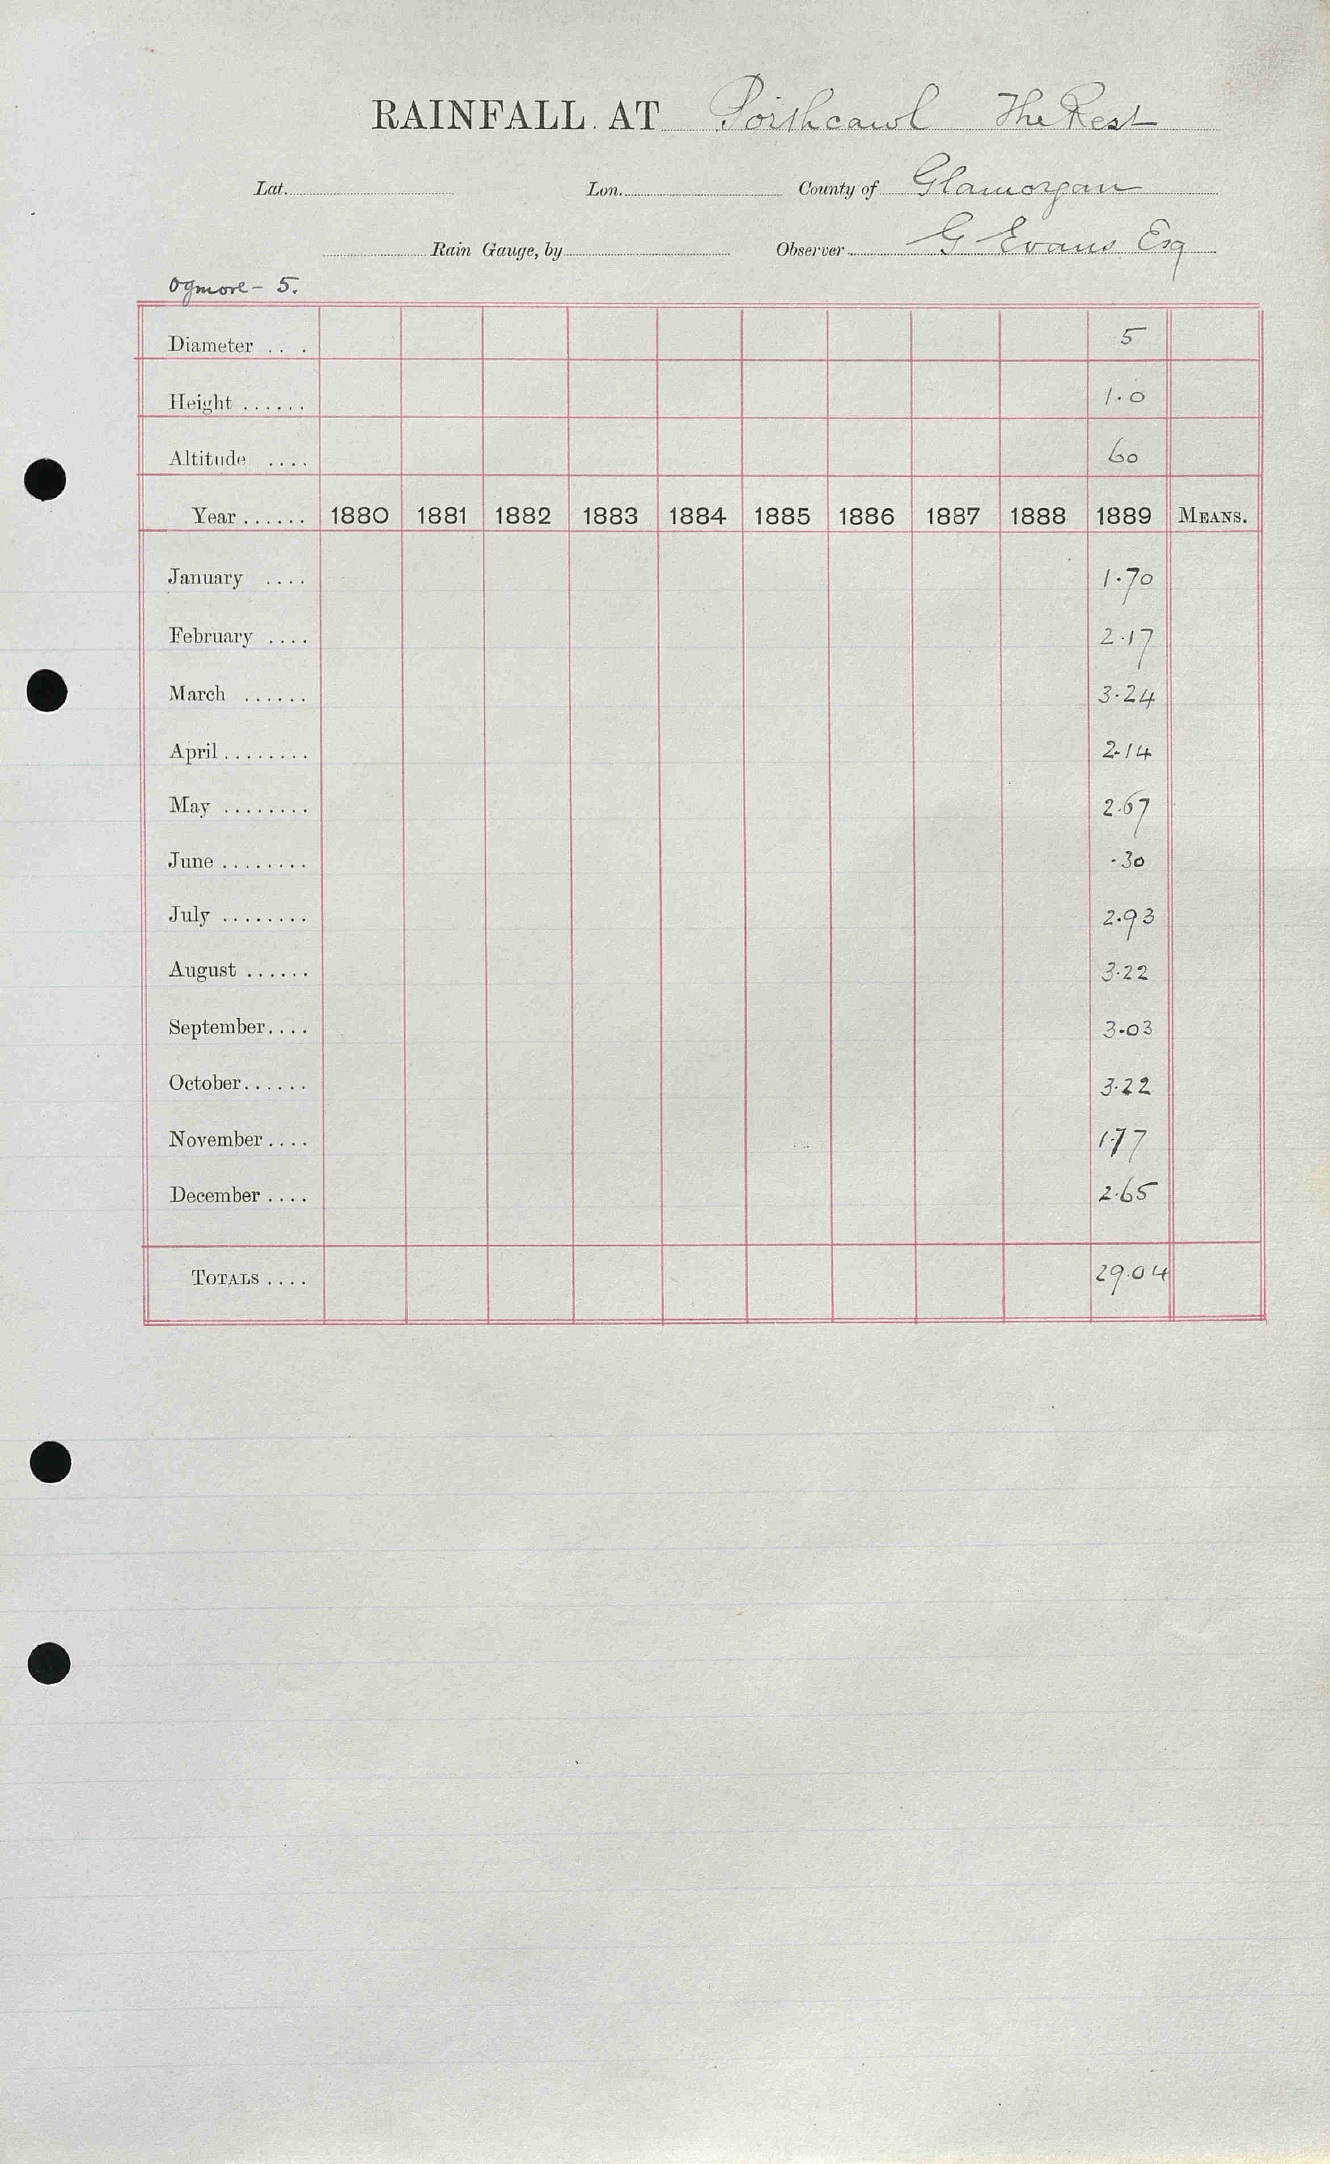 RAINFALL AT Porthcawl The Rest
Lat. Lon. County of Glamorgan
Rain Gauge, by Observer G Evans Esq
Ogmore - 5.
Diameter . . . 5
Height ...... 1.0
Altitude .... 60
Year ...... 1880 1881 1882 1883 1884 1885 1886 1887 1888 1889 MEANS.
January .... 1.70
February .... 2.17
March ...... 3.24
April ........ 2.14
May ........ 2.67
June ........ .30
July ........ 2.93
August ...... 3.22
September.... 3.03
October...... 3.22
November .... 1.77
December .... 2.65
TOTALS .... 29.04